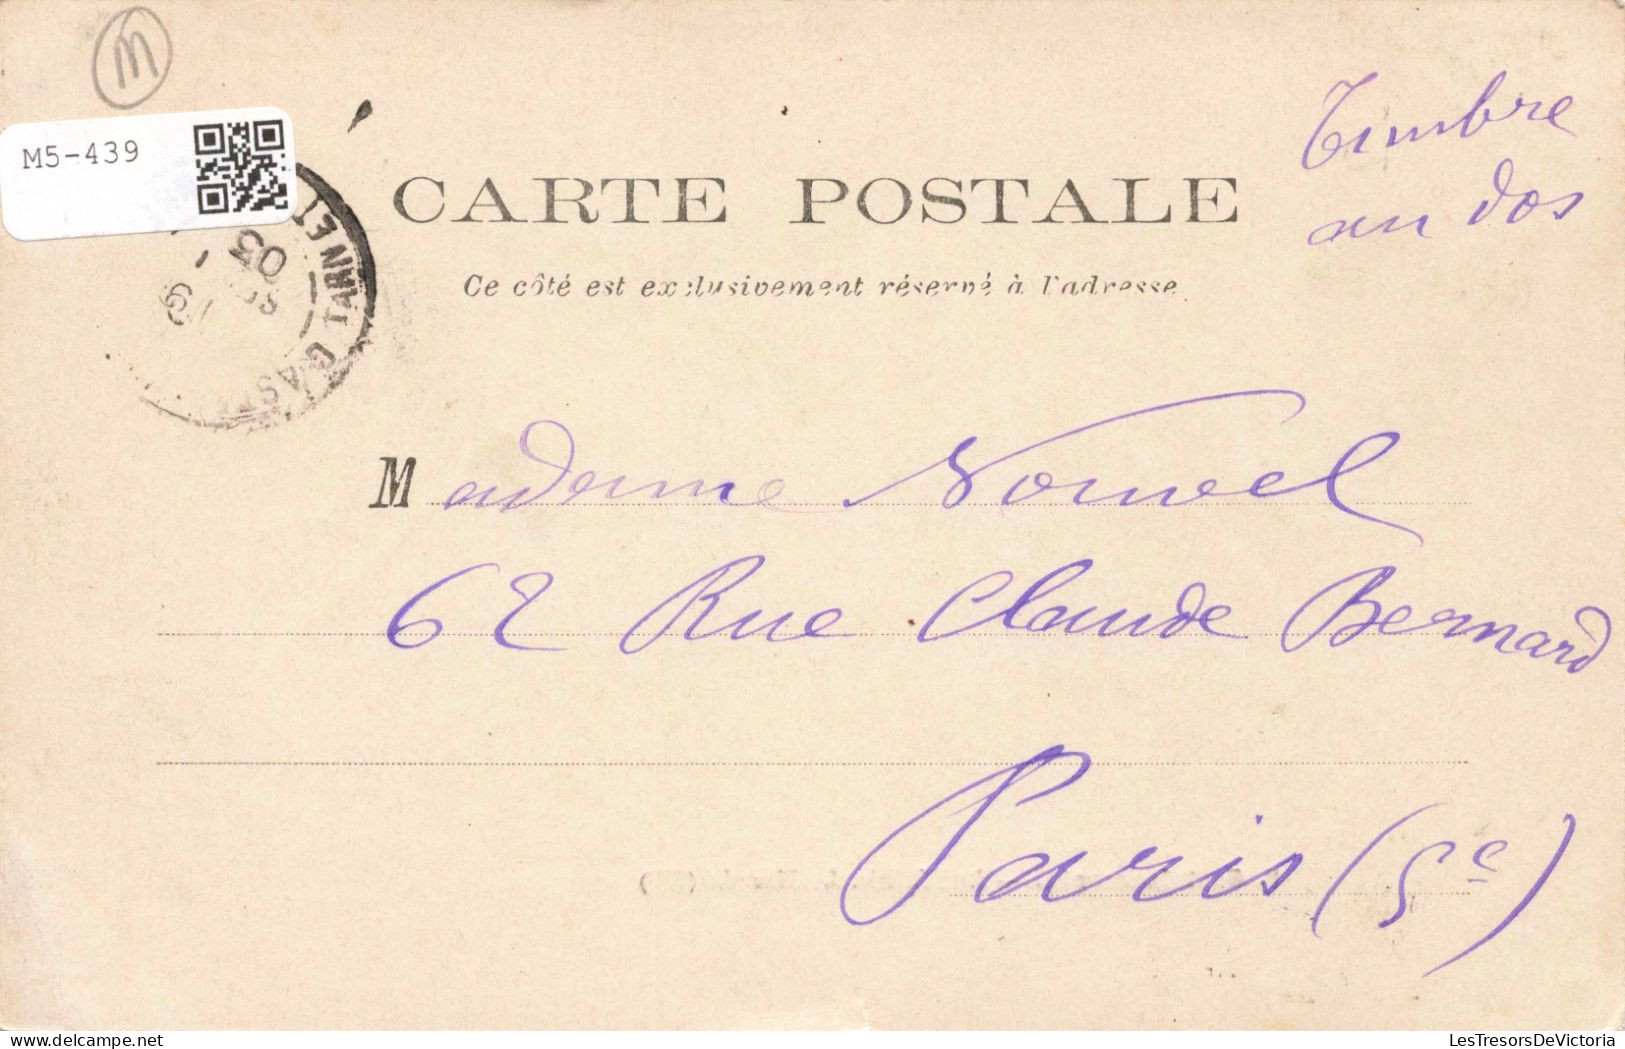 M
M5-439
Timbre
au dos
CARTE POSTALE
Ce côté est exclusivement réservé à l'adresse
TARN ET G
03
Madame Nouvel
62 Rue Claude Bernard
Paris (5e)
LesTresorsDeVictoria